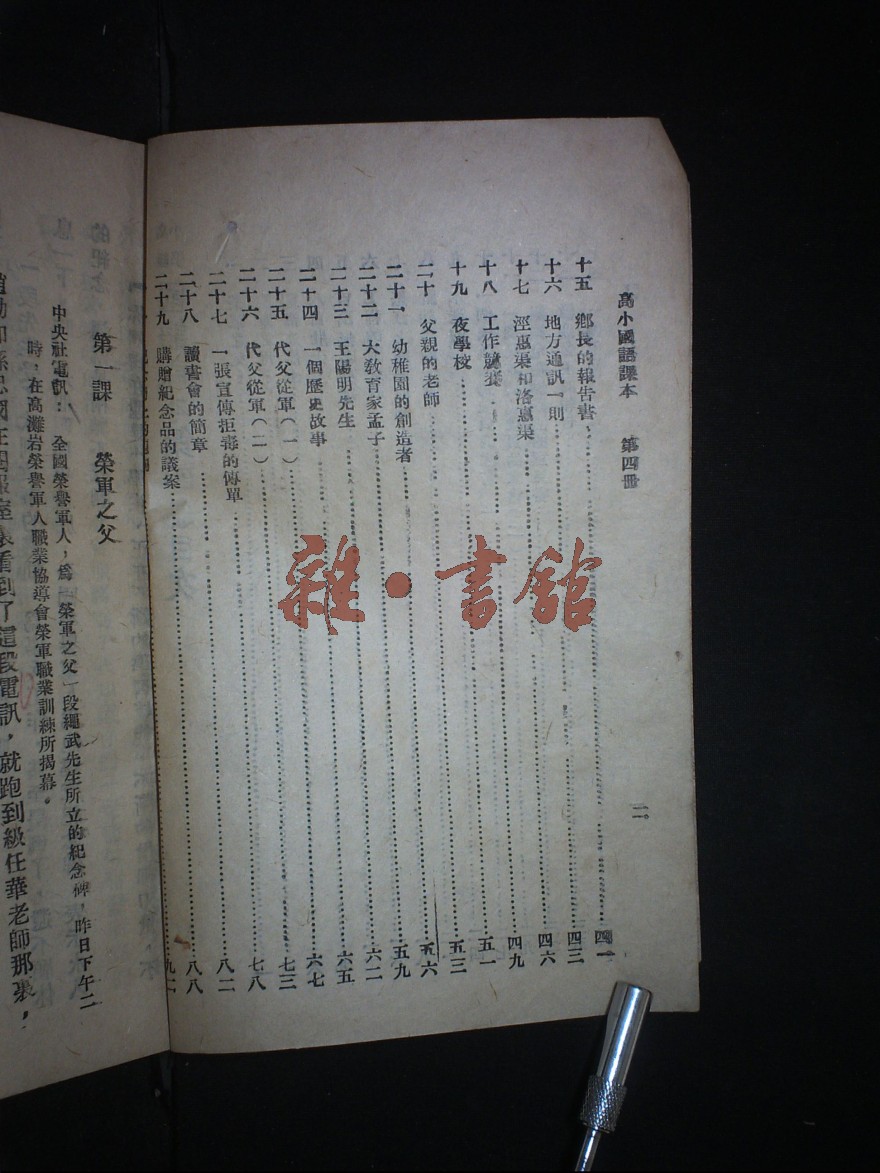 高小國語課本 第四冊
二
十五 鄉長的報告書 四一
十六 地方通訊一則 四三
十七 涇惠渠和洛惠渠 四六
十八 工作競賽 四九
十九 夜學校 五一
二十 父親的老師 五三
二十一 幼稚園的創造者 五六
二十二 大教育家孟子 五九
二十三 王陽明先生 六二
二十四 一個歷史故事 六五
二十五 代父從軍(一) 六七
二十六 代父從軍(二) 七三
二十七 一張宣傳拒毒的傳單 七八
二十八 讀書會的簡章 八二
二十九 購贈紀念品的議案 八八
九
第一課 榮軍之父
中央社電訊: 全國榮譽軍人,為「榮軍之父」段繩武先生所立的紀念碑,昨日下午二
時,在高灘岩榮譽軍人職業協導會榮軍職業訓練所揭幕。
看到了這段電訊,就跑到級任華老師那裏,
雜·書館